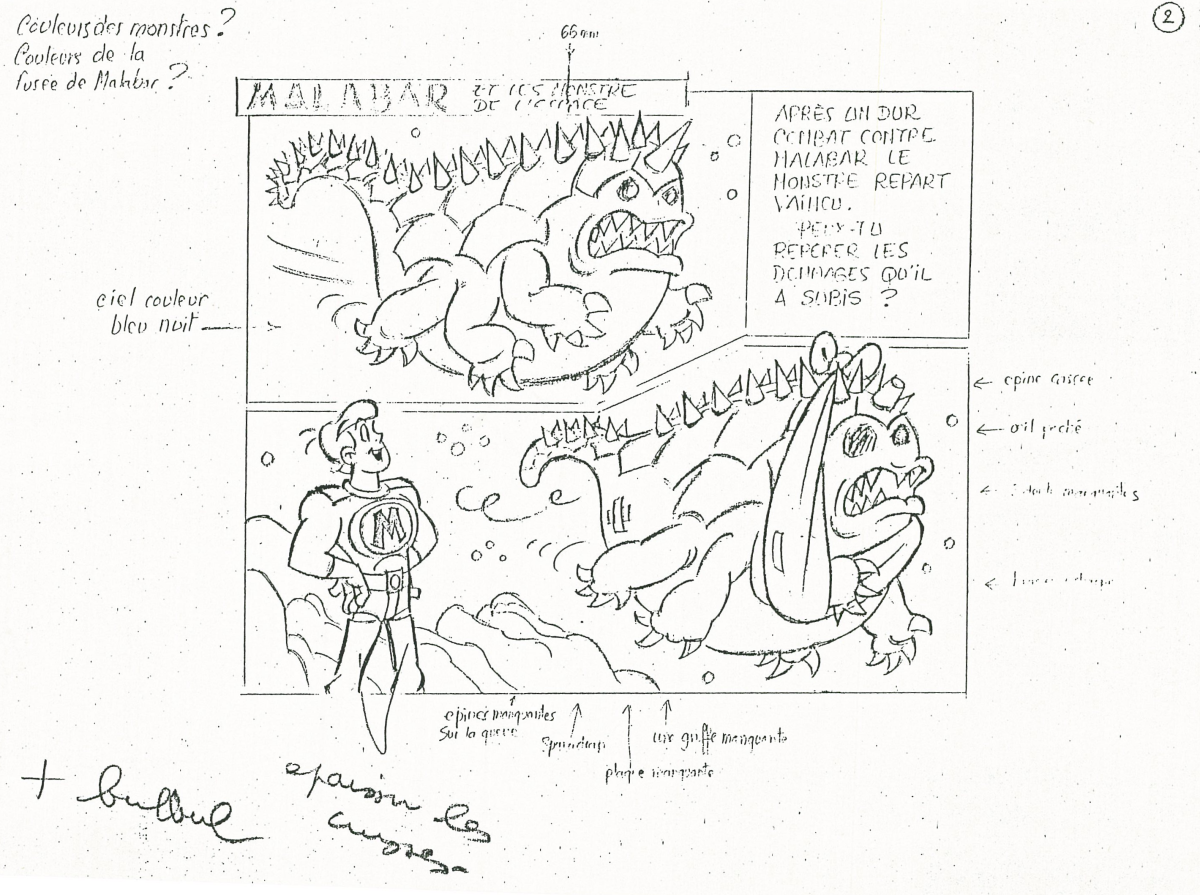 Couleurs des monstres ?
Couleurs de la
fusée de Malabar ?
2
66 mm
MALABAR ET LES MONSTRE
DE L'ESPACE
APRÈS UN DUR
COMBAT CONTRE
MALABAR LE
MONSTRE REPART
VAINCU.
PEUX-TU
REPÉRER LES
DOMMAGES QU'IL
A SUBIS ?
ciel couleur
bleu nuit
M
epine cassée
œil poché
manquantes
epines manquantes
Sur la queue
Sparadrap
une griffe manquante
plaque manquante
+ bulbul
epaissir les
cuisses